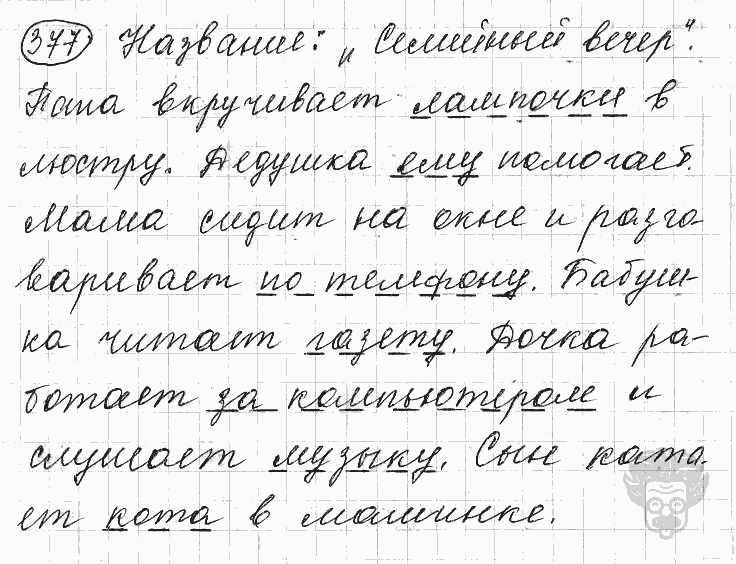 377 Название: „Семейный вечер".
Папа вкручивает лампочки в
люстру. Дедушка ему помогает.
Мама сидит на окне и разго-
варивает по телефону. Бабуш-
ка читает газету. Дочка ра-
ботает за компьютером и
слушает музыку. Сын ката-
ет кота в машинке.